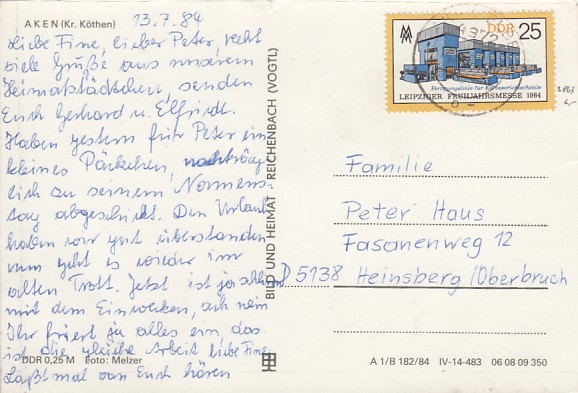 AKEN (Kr. Köthen)
13.7.84
Liebe Fine, lieber Peter, recht
viele Grüße aus unserem
Heimatstädtchen, senden
Euch Gerhard u. Elfriede.
Haben gestern für Peter ein
kleines Päckchen, nachträg
lich zu seinem Namens-
tag abgeschickt. Den Urlaub
haben wir gut überstanden
nun geht es wieder im
alten Trott. Jetzt ist ja schlimm
mit dem Einwecken, ach nein
Ihr friert ja alles ein das
ist die gleiche Arbeit liebe Fine.
Laßt mal von Euch hören
DDR 0,25 M Foto: Melzer
BILD UND HEIMAT REICHENBACH (VOGTL)
DDR 25
LEIPZIGER FRÜHJAHRSMESSE 1984
Familie
Peter Haus
Fasanenweg 12
D 5138 Heinsberg/Oberbruch
A 1/B 182/84 IV-14-483 06 08 09 350